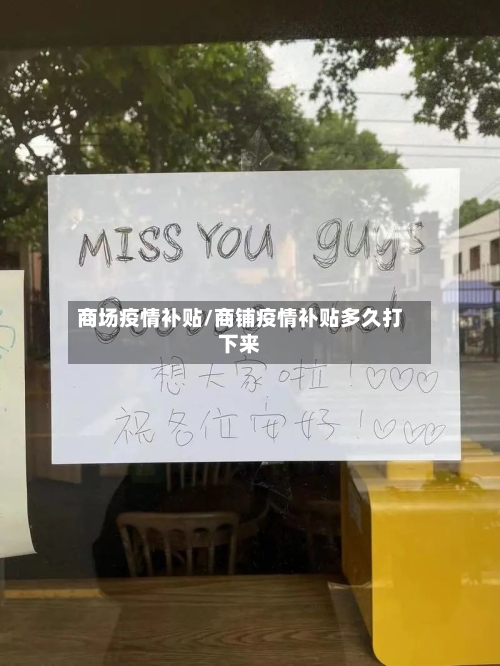 MISS YOU guys
商场疫情补贴/商铺疫情补贴多久打
下来
想大家啦！♡♡♡
祝各位安好！♡♡♡